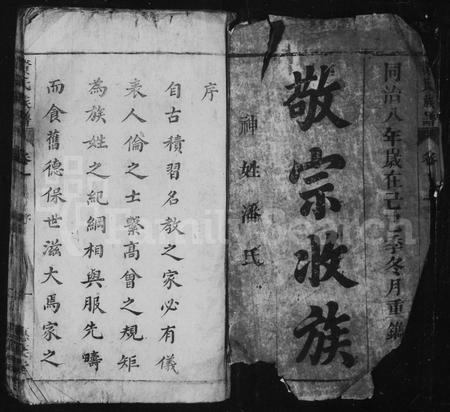 同治八年歲在己巳季冬月重鐫
敬宗收族
神姓潘氏
序
自古積習名教之家必有儀
表人倫之士繫高曾之規矩
為族姓之紀綱相與服先疇
而食舊德保世滋大焉家之
FamilySearch